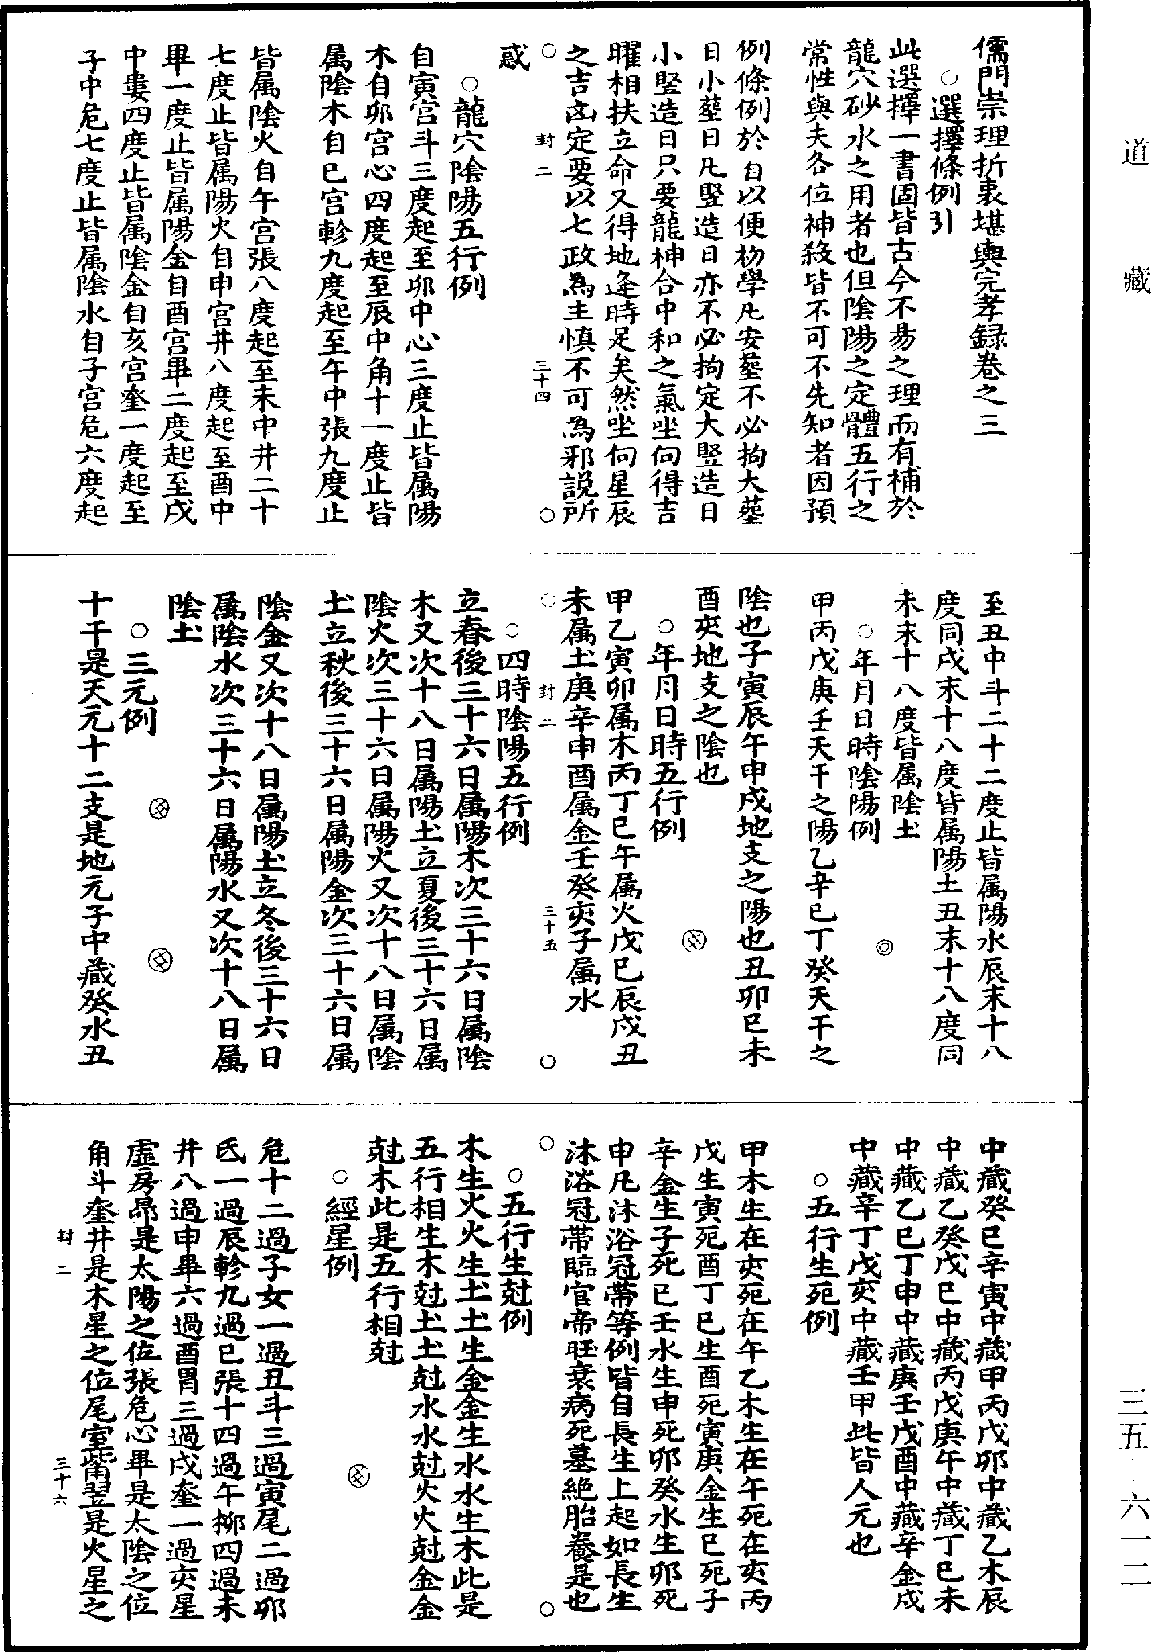 道藏
三五·六一二
儒門崇理折衷堪輿完孝録卷之三
○選擇條例引
此選擇一書固皆古今不易之理而有補於
龍穴砂水之用者也但陰陽之定體五行之
常性與夫各位神殺皆不可不先知者因預
例條例於自以便初學凡安塟不必拘大塟
日小塟日凡竪造日亦不必拘定大竪造日
小竪造日只要龍神合中和之氣坐向得吉
曜相扶立命又得地逢時足矣然坐向星辰
之吉凶定要以七政為主慎不可為邪説所
○　封二　三十四　○
惑
○龍穴陰陽五行例
自寅宮斗三度起至卯中心三度止皆属陽
木自卯宮心四度起至辰中角十一度止皆
属陰木自巳宮軫九度起至午中張九度止
皆属陰火自午宮張八度起至未中井二十
七度止皆属陽火自申宮井八度起至酉中
畢一度止皆属陽金自酉宮畢二度起至戌
中婁四度止皆属陰金自亥宮奎一度起至
子中危七度止皆属陰水自子宮危六度起
至丑中斗二十二度止皆属陽水辰末十八
度同戌末十八度皆属陽土丑末十八度同
未末十八度皆属陰土
○年月日時陰陽例
甲丙戊庚壬天干之陽乙辛巳丁癸天干之
陰也子寅辰午申戌地支之陽也丑卯巳未
酉亥地支之陰也
○年月日時五行例
甲乙寅卯属木丙丁巳午属火戊巳辰戌丑
未属土庚辛申酉属金壬癸亥子属水
○　封二　三十五　○
○四時陰陽五行例
立春後三十六日属陽木次三十六日属陰
木又次十八日属陽土立夏後三十六日属
陰火次三十六日属陽火又次十八日属陰
土立秋後三十六日属陽金次三十六日属
陰金又次十八日属陽土立冬後三十六日
属陰水次三十六日属陽水又次十八日属
陰土
○三元例
十干是天元十二支是地元子中藏癸水丑
中藏癸巳辛寅中藏甲丙戊卯中藏乙木辰
中藏乙癸戊巳中藏丙戊庚午中藏丁巳未
中藏乙巳丁申中藏庚壬戊酉中藏辛金戌
中藏辛丁戊亥中藏壬甲此皆人元也
○五行生死例
甲木生在亥死在午乙木生在午死在亥丙
戊生寅死酉丁巳生酉死寅庚金生巳死子
辛金生子死巳壬水生申死卯癸水生卯死
申凡沐浴冠帶等例皆自長生上起如長生
沐浴冠帶臨官帝旺衰病死墓絶胎養是也
○　○
○五行生尅例
木生火火生土土生金金生水水生木此是
五行相生木尅土土尅水水尅火火尅金金
尅木此是五行相尅
○經星例
危十二過子女一過丑斗三過寅尾二過卯
氐一過辰軫九過巳張十四過午柳四過未
井八過申畢六過酉胃三過戌奎一過亥星
虛房昴是太陽之位張危心畢是太陰之位
角斗奎井是木星之位尾室觜翌是火星之
封二　三十六